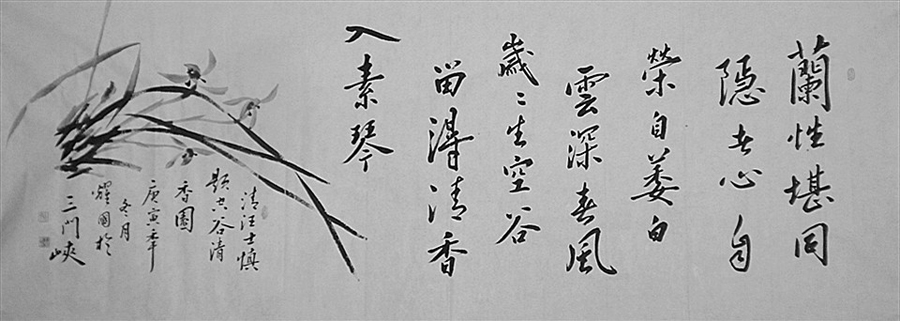 蘭性堪同
隱者心自
榮自萎白
雲深春風
歲〻生空谷
留得清香
入素琴
清汪士慎
題空谷清
香圖
庚寅年
冬月
耀國於
三門峽